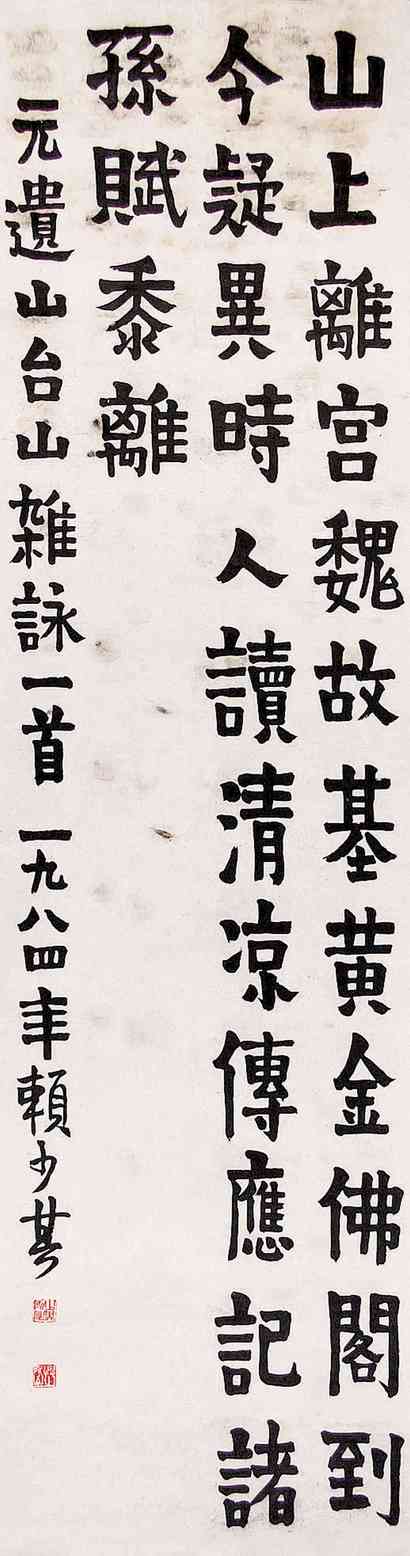 山上離宮魏故基黄金佛閣到
今疑異時人讀清凉傳應記諸
孫賦黍離
元遺山台山雑詠一首一九八四年賴少其